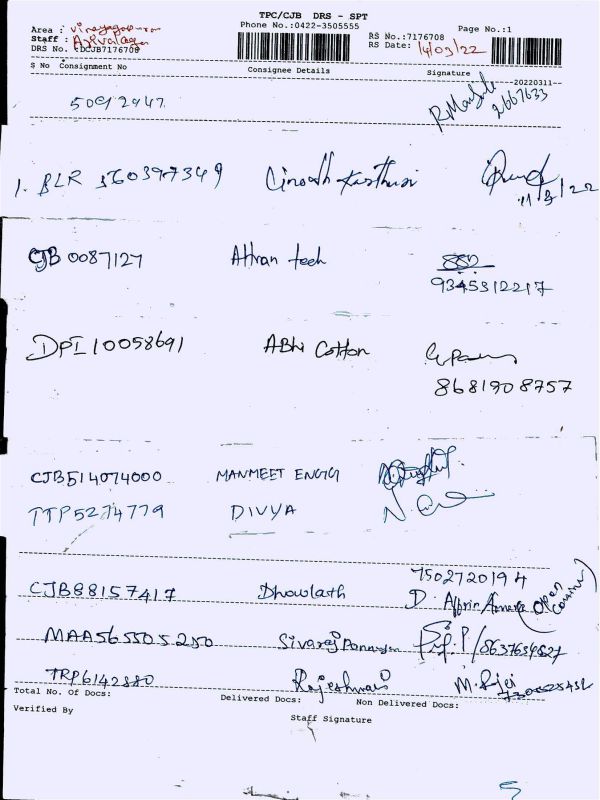 TPC/CJB DRS - SPT
Phone No.:0422-3505555
Area : Vinayagapuram
Staff :
DRS No. :DCJB7176708
RS No.:7176708 Page No.:1
RS Date: 14/03/22
S No Consignment No Consignee Details Signature
20220311
50912947 2667633
1. BLR 360397349 Vinoth Karthuri 11/3/22
CJB 0087127 Athran tech
9345312217
DPI10058691 ABhi Cotton
8681908757
CJB514074000 MANMEET ENGG
TTP5274779 DIVYA N.
7502720194
CJB88157417 Dhowlath D. (open
MAA565505250 Sivaraj /8637634627
TRP6142880 Rajeshwari M.
Total No. Of Docs: Delivered Docs: Non Delivered Docs:
Verified By Staff Signature